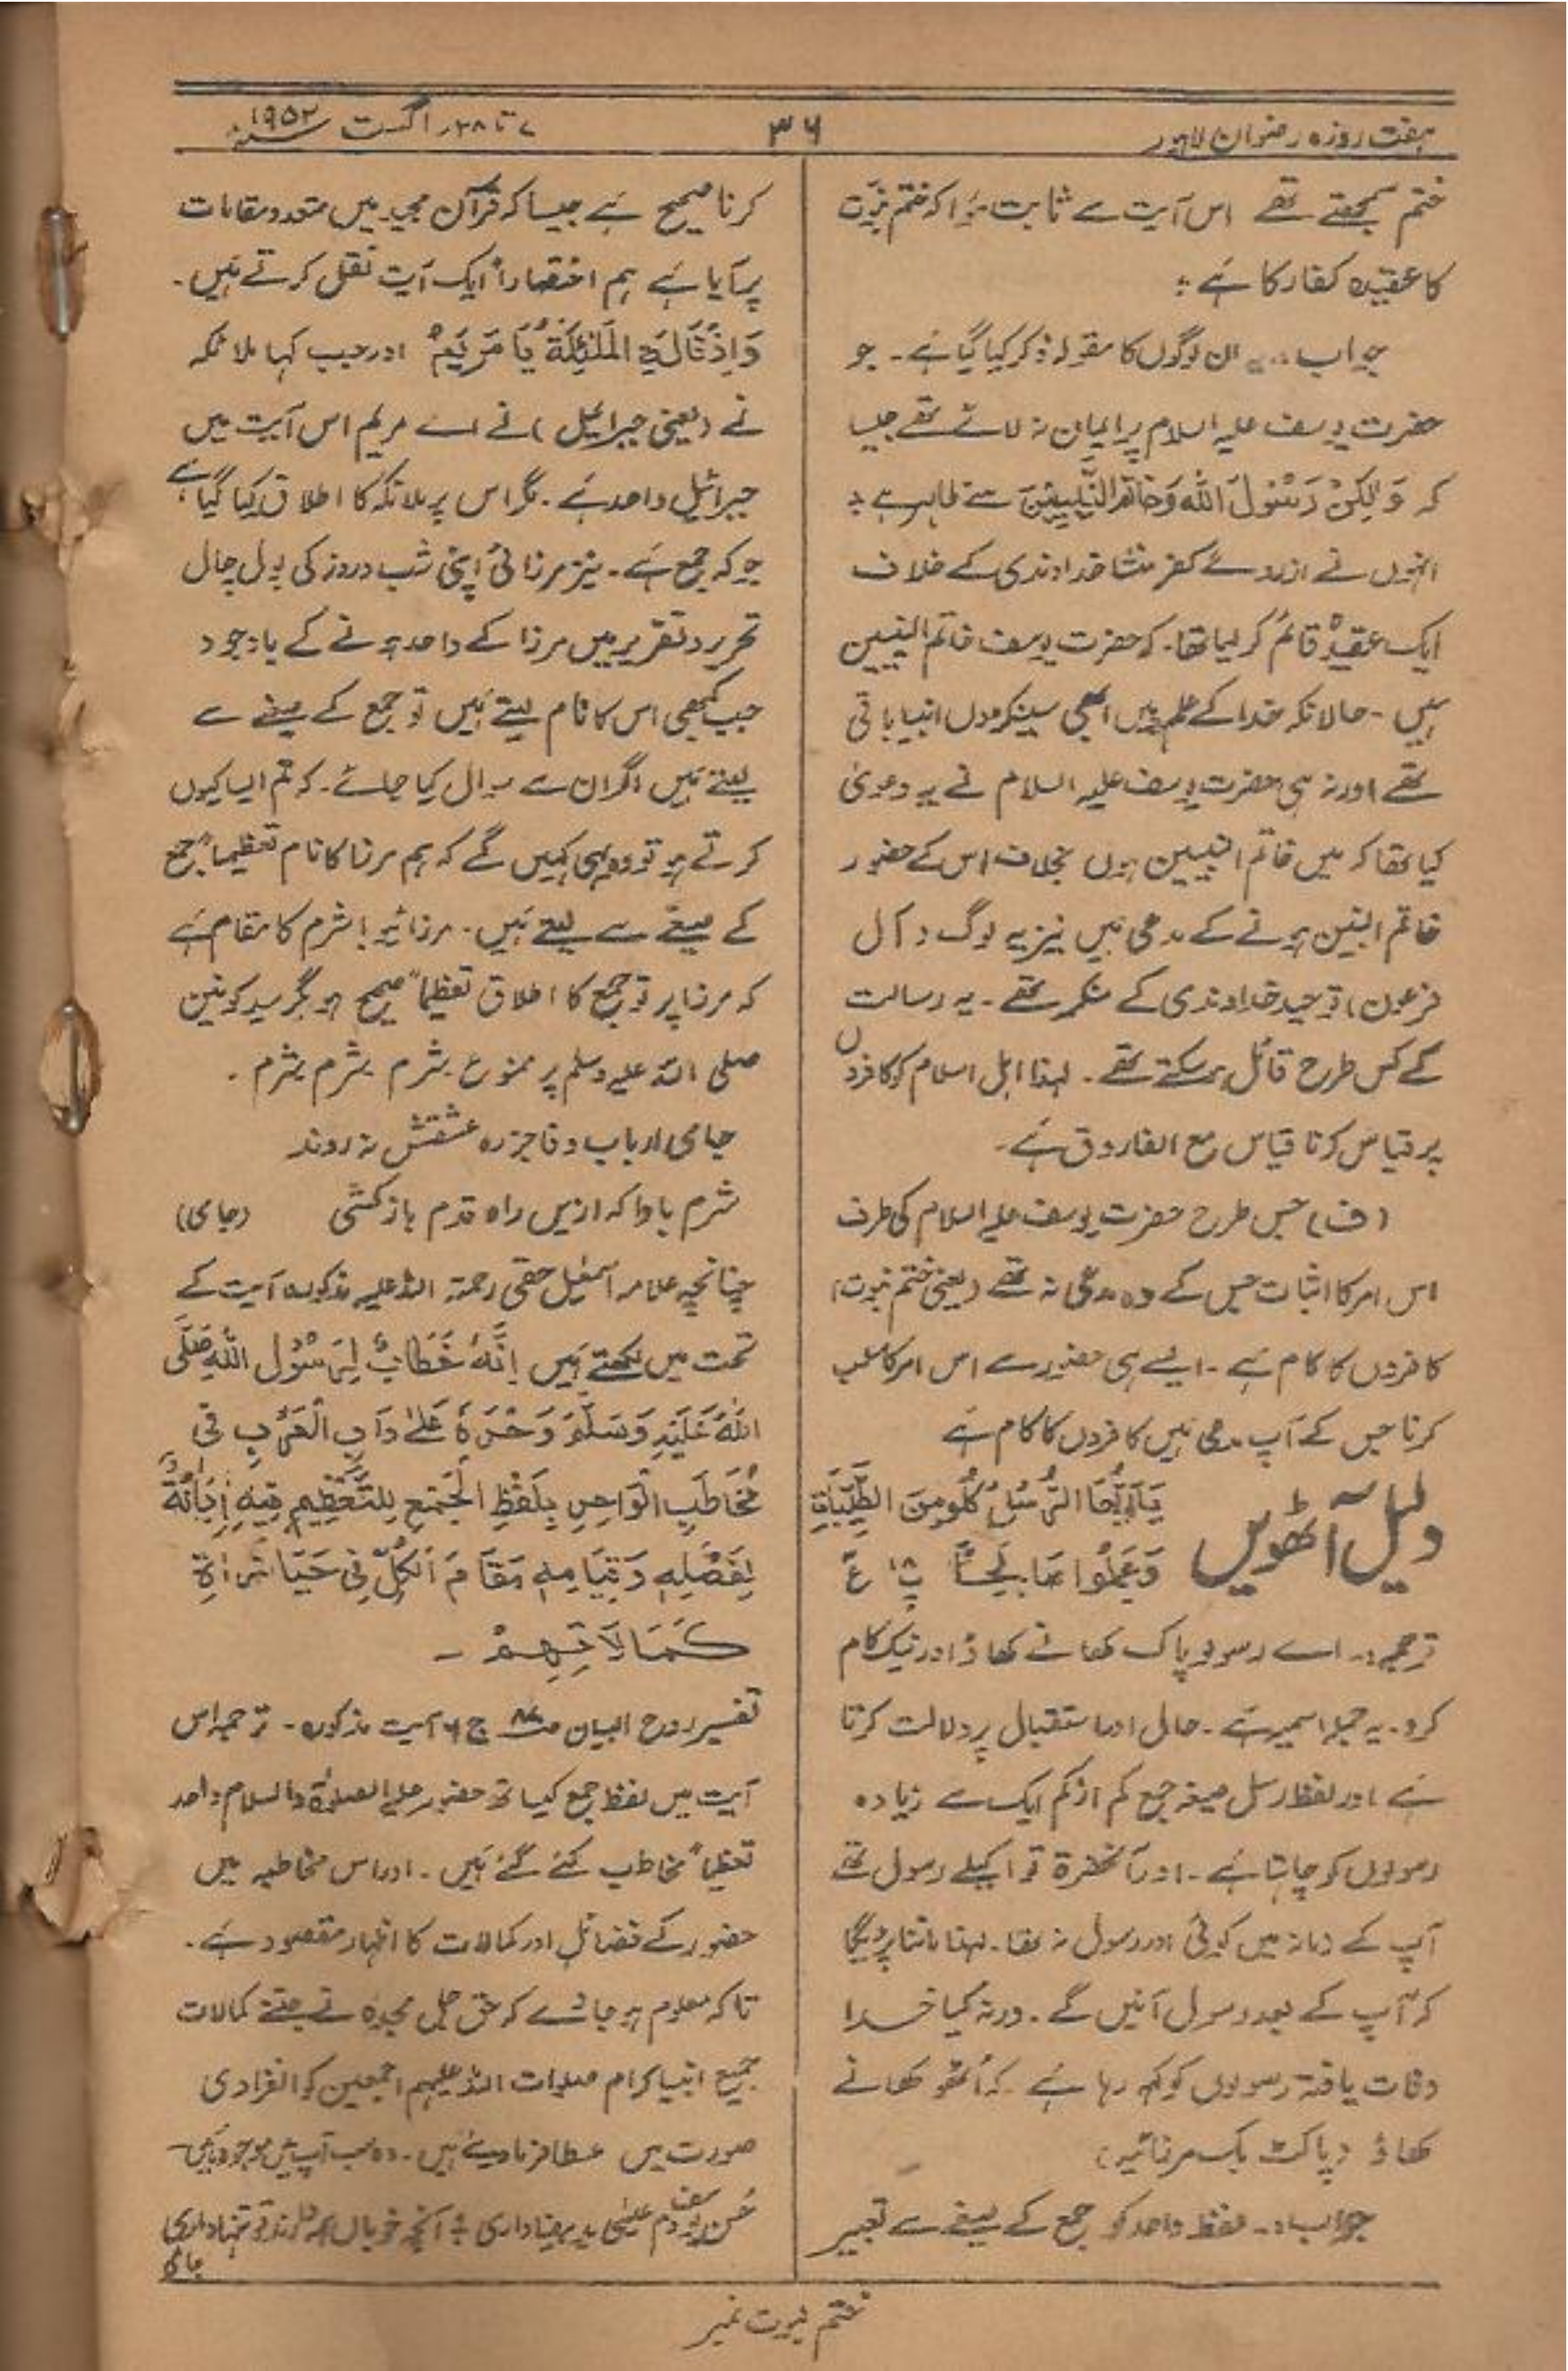 ہفت روزہ رضوان لاہور
۳۶
۷ تا ۲۸ر اگست سنہ ۱۹۵۲
ختم سمجھتے تھے اس آیت سے ثابت ہوا کہ ختم نبوت
کا عقیدہ کفار کا ہے :
جواب :۔ یہ ان لوگوں کا مقولہ ذکر کیا گیا ہے۔ جو
حضرت یوسف علیہ السلام پر ایمان نہ لائے تھے جیسا
کہ وَلٰکِنْ رَسُوْلَ اللہِ وَخَاتَمَ النَّبِیِّیْنَ سے ظاہر ہے :
انہوں نے ازروئے کفر منشا خداوندی کے خلاف
ایک عقیدہ قائم کر لیا تھا۔ کہ حضرت یوسف خاتم النبیین
ہیں ۔ حالانکہ خدا کے علم میں ابھی سینکڑوں انبیا باقی
تھے اور نہ ہی حضرت یوسف علیہ السلام نے یہ دعویٰ
کیا تھا کہ میں خاتم النبیین ہوں بخلاف اس کے حضور
خاتم النبین ہونے کے مدعی ہیں نیز یہ لوگ (آل
فرعون) توحید خداوندی کے منکر تھے ۔ یہ رسالت
کے کس طرح قائل ہو سکتے تھے ۔ لہذا اہل اسلام کو کافروں
پر قیاس کرنا قیاس مع الفاروق ہے۔
(ف) جس طرح حضرت یوسف علیہ السلام کی طرف
اس امر کا اثبات جس کے وہ مدعی نہ تھے (یعنی ختم نبوت)
کافروں کا کام ہے ۔ ایسے ہی حضور سے اس امر کا سلب
کرنا جس کے آپ مدعی ہیں کافروں کا کام ہے
دلیل آٹھویں
یٰۤاَیُّھَا الرُّسُلُ کُلُوْا مِنَ الطَّیِّبَاتِ
وَعْمَلُوْا صَالِحًا پ ۱۸ ع
ترجمہ :۔ اے رسولو پاک کھانے کھاؤ اور نیک کام
کرو ۔ یہ جملہ اسمیہ ہے ۔ حال اور استقبال پر دلالت کرتا
ہے اور لفظ رسل صیغہ جمع کم از کم ایک سے زیادہ
رسولوں کو چاہتا ہے ۔ اور آنحضرۃ تو اکیلے رسول تھے
آپ کے زمانہ میں کوئی اور رسول نہ تھا۔ لہذا ماننا پڑیگا
کہ آپ کے بعد رسول آئیں گے ۔ ورنہ کیا خدا
وفات یافتہ رسولوں کو کہہ رہا ہے ۔ کہ اُٹھو کھانے
کھاؤ (پاکٹ بک مرزائیہ)
جواب :۔ لفظ واحد کو جمع کے صیغے سے تعبیر
کرنا صحیح ہے جیسا کہ قرآن مجید میں متعدد مقامات
پر آیا ہے ہم اختصاراً ایک آیت نقل کرتے ہیں ۔
وَاِذْ قَالَتِ الْمَلٰئِکَۃُ یَا مَرْیَمُ اور جب کہا ملائکہ
نے (یعنی جبرائیل) نے اے مریم اس آیت میں
جبرائیل واحد ہے ۔ مگر اس پر ملائکہ کا اطلاق کیا گیا ہے
جو کہ جمع ہے ۔ نیز مرزائی اپنی شب و روز کی بول چال
تحریر و تقریر میں مرزا کے واحد ہونے کے باوجود
جب کبھی اس کا نام لیتے ہیں تو جمع کے صیغے سے
لیتے ہیں اگر ان سے سوال کیا جائے ۔ کہ تم ایسا کیوں
کرتے ہو تو وہ یہی کہیں گے کہ ہم مرزا کا نام تعظیماً جمع
کے صیغے سے لیتے ہیں ۔ مرزائیو! شرم کا مقام ہے
کہ مرزا پر تو جمع کا اطلاق تعظیماً صحیح ہو مگر سید کونین
صلی اللہ علیہ وسلم پر ممنوع شرم شرم شرم ۔
جامی ارباب وفا جز رہ عشقش نہ روند
شرم بادا کہ ازیں راہ قدم باز کشی (جامی)
چنانچہ علامہ اسمٰعیل حقی رحمۃ اللہ علیہ مذکورہ آیت کے
تحت میں لکھتے ہیں اِنَّہٗ خِطَابٌ لِرَسُوْلِ اللہِ صَلَّی
اللہُ عَلَیْہِ وَسَلَّمَ وَحْدَہٗ عَلٰی دَابِ الْعَرَبِ فِی
مُخَاطَبِ الْوَاحِدِ بِلَفْظِ الْجَمْعِ لِلتَّعْظِیْمِ فِیْہِ اِبَانَۃٌ
لِفَضْلِہٖ وَقِیَامِہٖ مَقَامَ الْکُلِّ فِی حَیَازَۃِ
کَمَالَاتِھِمْ ۔
تفسیر روح البیان ج ۶ آیت مذکورہ ۔ ترجمہ اس
آیت میں لفظ جمع کیساتھ حضور علیہ الصلوٰۃ والسلام واحد
تعظیماً مخاطب کئے گئے ہیں ۔ اور اس مخاطبہ میں
حضور کے فضائل اور کمالات کا اظہار مقصود ہے ۔
تاکہ معلوم ہو جائے کہ حق جل مجدہ نے جتنے کمالات
جمیع انبیا کرام صلوات اللہ علیہم اجمعین کو انفرادی
صورت میں عطا فرما دیئے ہیں ۔ وہ سب آپ میں موجود ہیں۔
حسن یوسف دم عیسیٰ ید بیضا داری : آنچہ خوباں ہمہ دارند تو تنہا داری
جامی
ختم نبوت نمبر